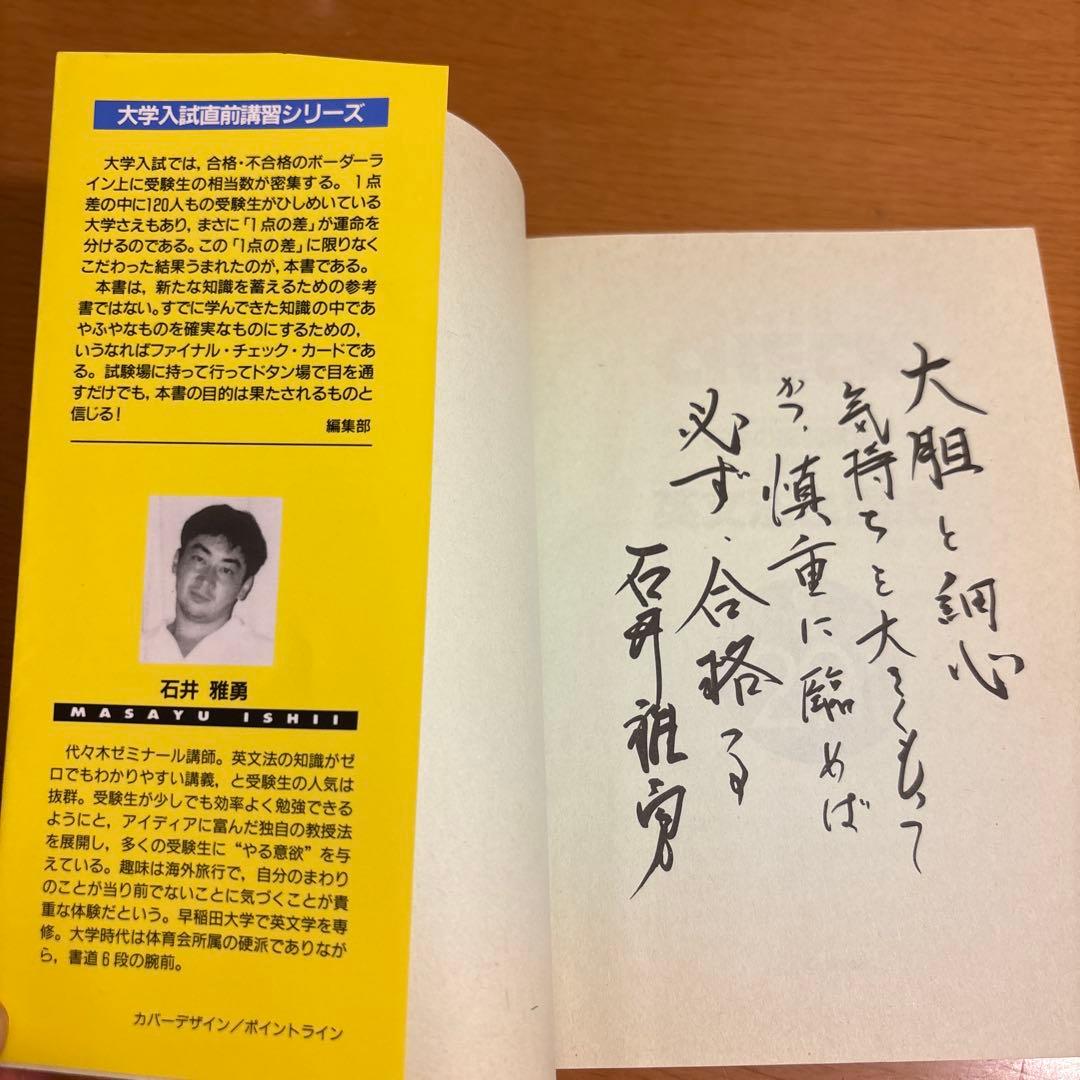 大学入試直前講習シリーズ
大学入試では,合格・不合格のボーダーラ
イン上に受験生の相当数が密集する。1点
差の中に120人もの受験生がひしめいている
大学さえもあり,まさに「1点の差」が運命を
分けるのである。この「1点の差」に限りなく
こだわった結果うまれたのが,本書である。
本書は,新たな知識を蓄えるための参考
書ではない。すでに学んできた知識の中であ
やふやなものを確実なものにするための,
いうなればファイナル・チェック・カードであ
る。試験場に持って行ってドタン場で目を通
すだけでも,本書の目的は果たされるものと
信じる!
編集部
石井 雅勇
MASAYU ISHII
代々木ゼミナール講師。英文法の知識がゼ
ロでもわかりやすい講義,と受験生の人気は
抜群。受験生が少しでも効率よく勉強できる
ようにと,アイディアに富んだ独自の教授法
を展開し,多くの受験生に“やる意欲”を与
えている。趣味は海外旅行で,自分のまわり
のことが当り前でないことに気づくことが貴
重な体験だという。早稲田大学で英文学を専
修。大学時代は体育会所属の硬派でありなが
ら,書道6段の腕前。
カバーデザイン/ポイントライン
大胆と細心
気持ちを大きくもって
かつ、慎重に臨めば
必ず、合格る
石井雅勇